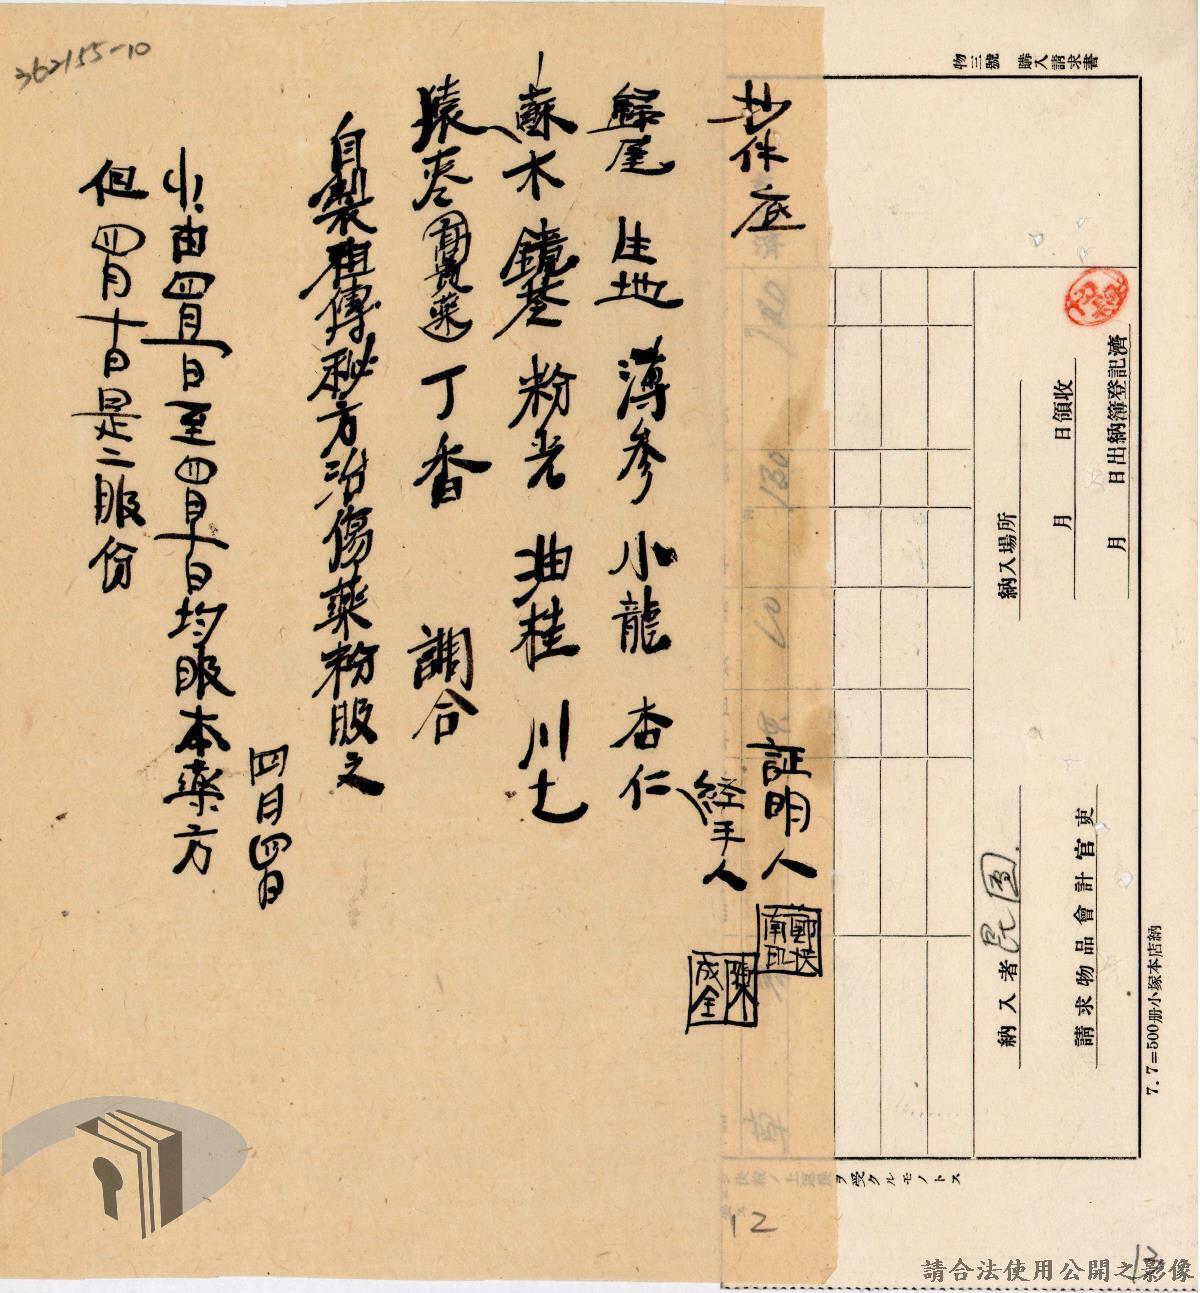 362155-10
物三號 購入請求書
抄件底
歸尾 生地 薄參 小龍 杏仁
蘇木 鏡巷 粉光 油桂 川七
猿枣(高貴藥) 丁香 調合
自製祖傳秘方治傷藥粉服之
四月四日
由四月一日至四月十日均服本藥方
但四月十日是二服份
証明人
経手人
陳成全
日出納簿登記濟
月
日領收
月
納入場所
納入者
請求物品會計官吏
7.7=500冊小塚本店納
130
ヲ受クルモノトス
12
13
請合法使用公開之影像